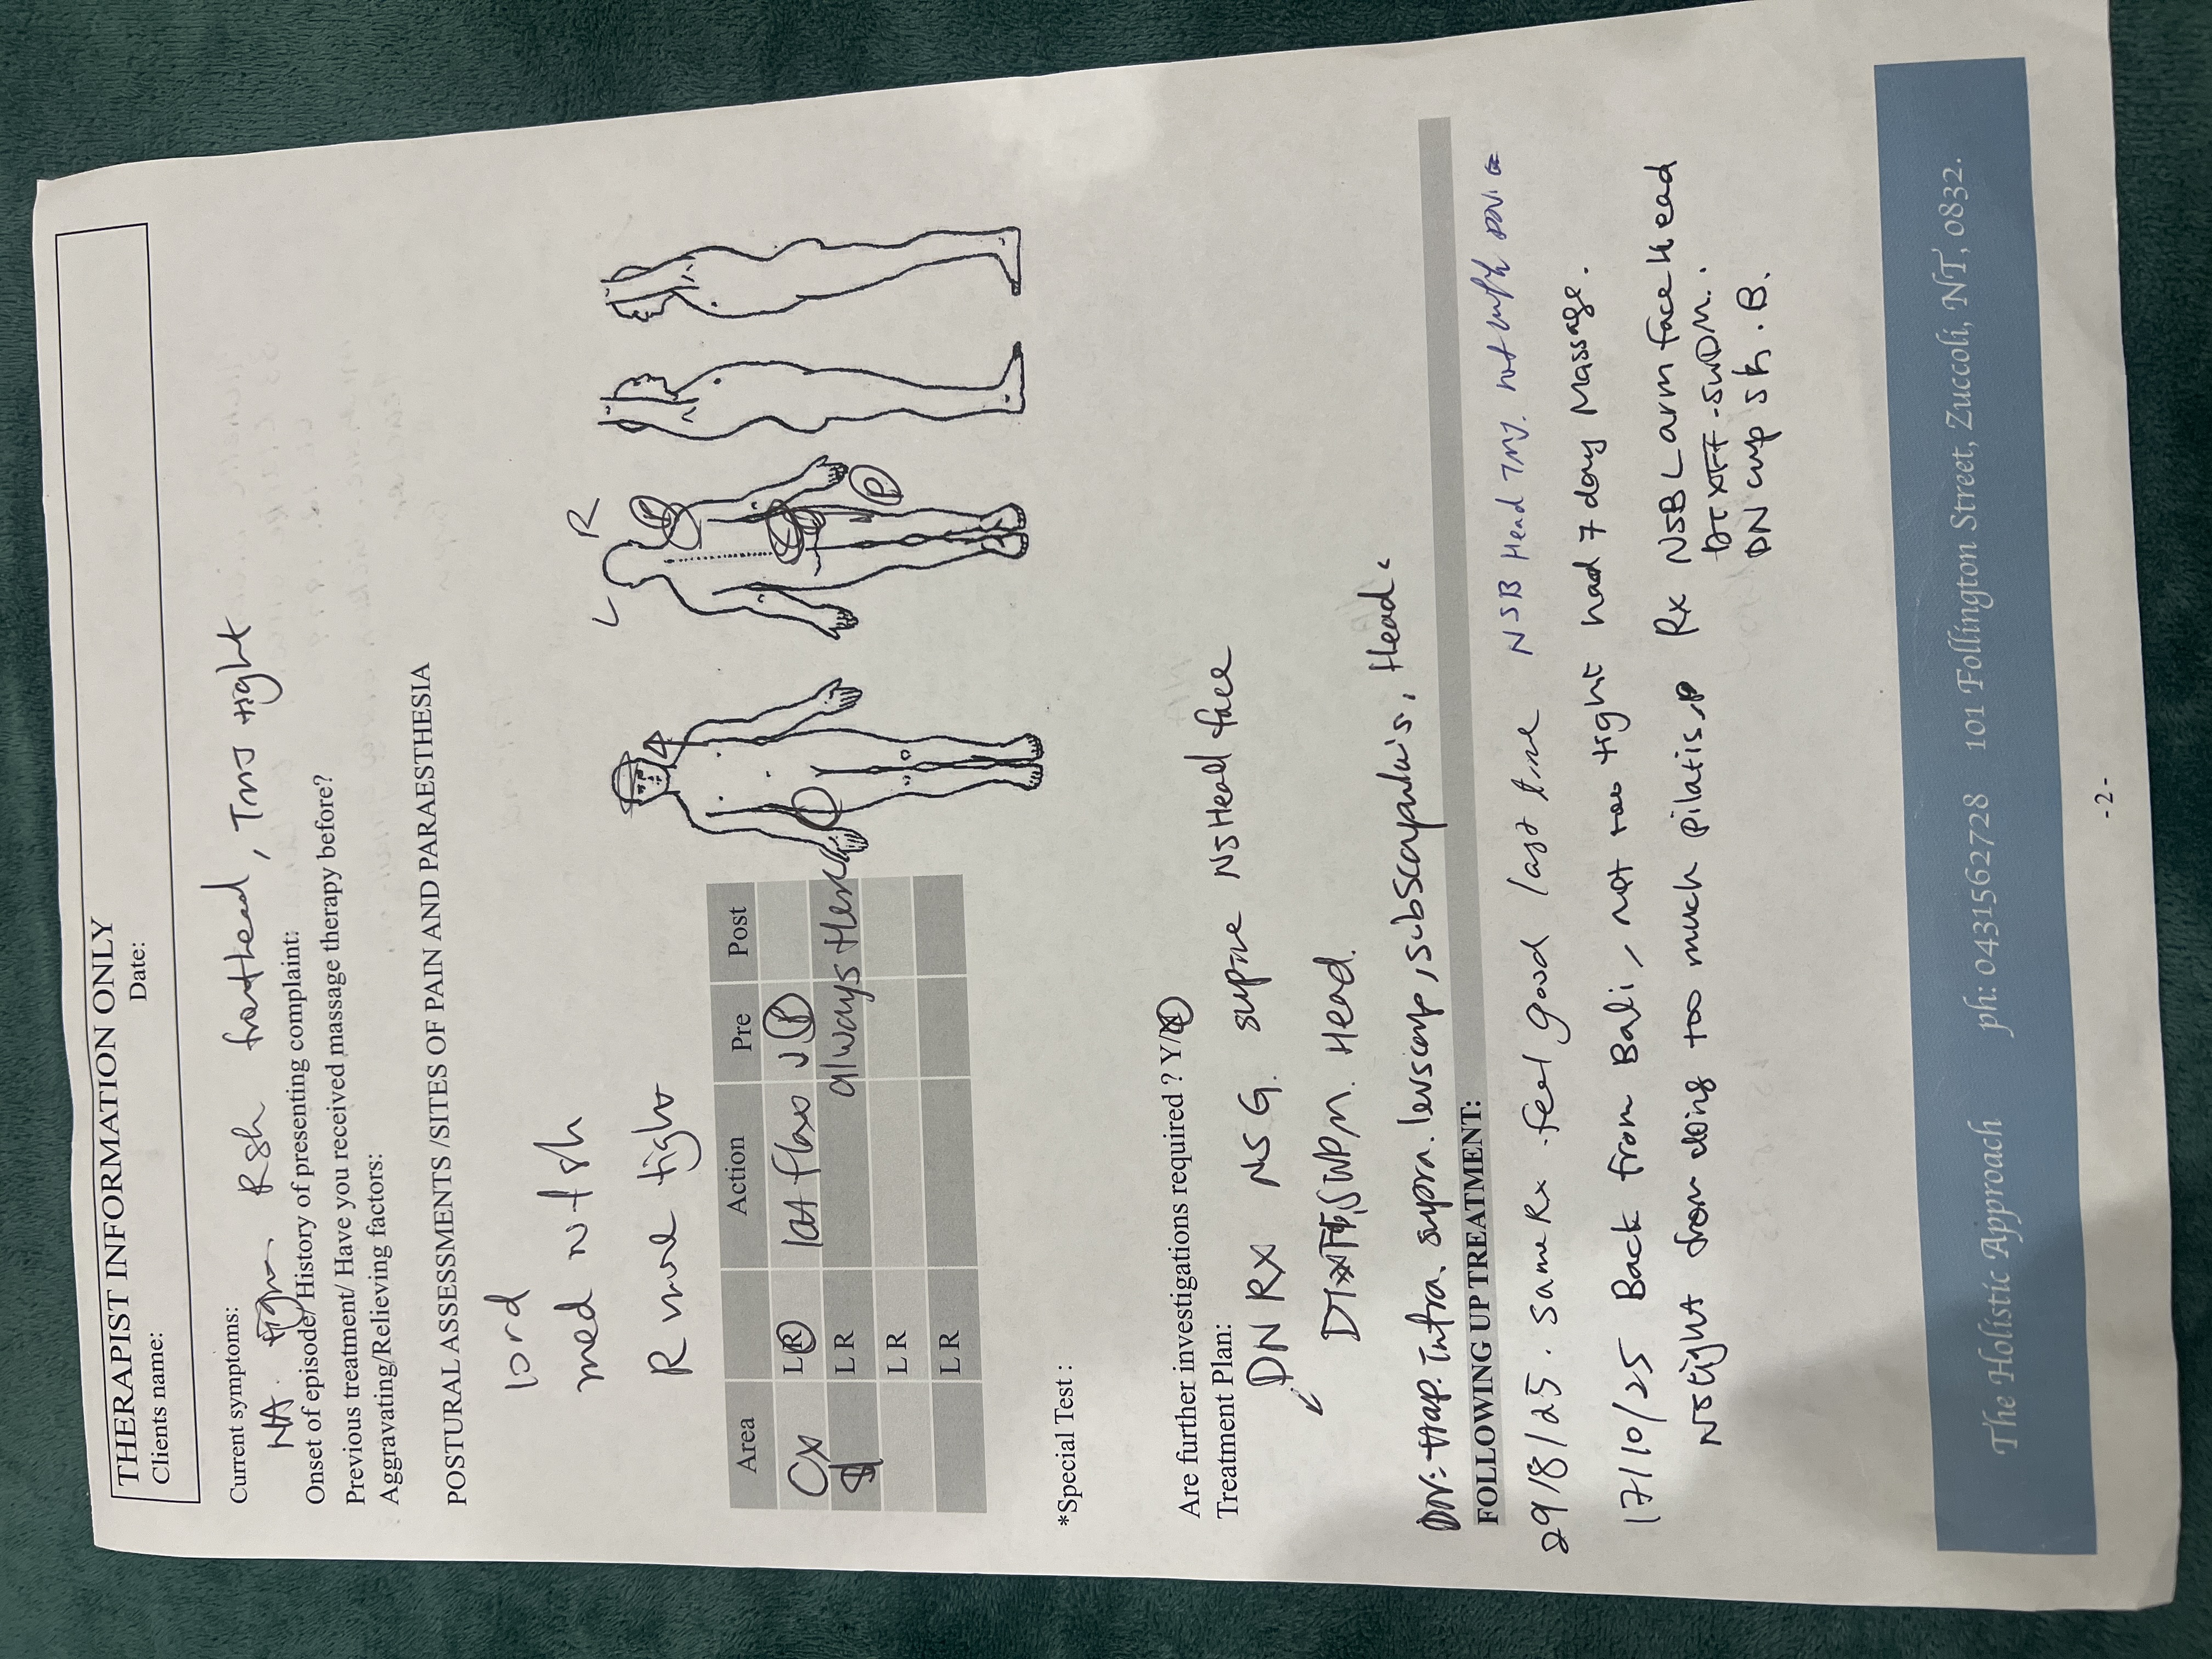 THERAPIST INFORMATION ONLY
Clients name: Date:
Current symptoms: Rsh Head, TMJ tight
NA.
Onset of episode/ History of presenting complaint:
Previous treatment/ Have you received massage therapy before?
Aggravating/Relieving factors:
POSTURAL ASSESSMENTS /SITES OF PAIN AND PARAESTHESIA
lord
med rot sh
R more tight
L R
P
Area Action Pre Post
Cx L R lat flex P
L R always there
L R
L R
*Special Test :
Are further investigations required ? Y/N
Treatment Plan:
DN RX NSG. supine NSHead face
Head.
trap. Infra. supra. levscap, subscapularis, Head.
FOLLOWING UP TREATMENT:
29/8/25. same Rx. feel good last time NSB Head TMJ. not
17/10/25 Back from Bali, not too tight had 7 day Massage.
NStight from doing too much pilatis. Rx NSB L arm face Head
DTXFF-SWDM.
DN cup sh. B.
The Holistic Approach ph: 0431562728 101 Follington Street, Zuccoli, NT, 0832.
-2-